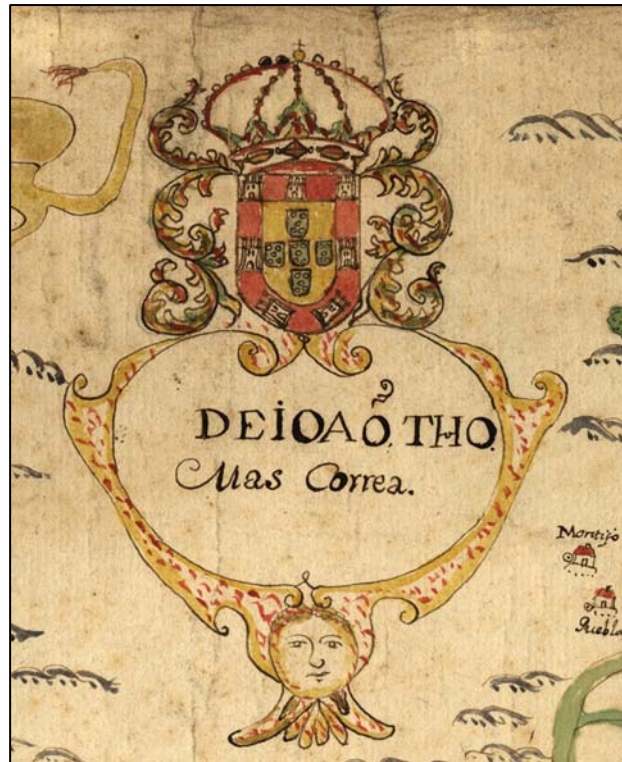 DEIOAÕ. THO.
Mas Correa.
Montijo
Puebla